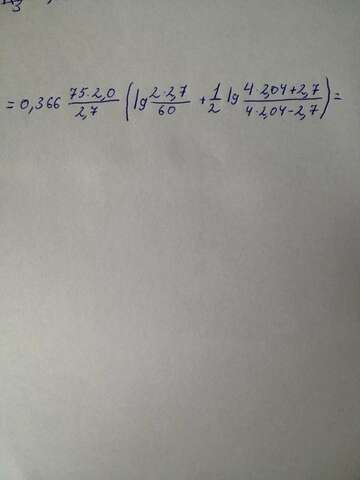 = 0,366 75·2,0/2,7 (lg 2·2,7/60 + 1/2 lg 4·2,04+2,7/4·2,04-2,7) =